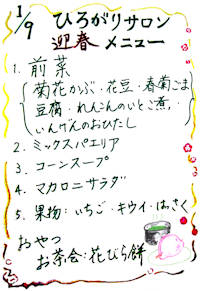 1/9 ひろがりサロン
迎春 メニュー
1. 前菜
菊花かぶ・花豆・春菊ごま
豆腐・れんこんのいとこ煮・
いんげんのおひたし
2. ミックスパエリア
3. コーンスープ
4. マカロニサラダ
5. 果物:いちご・キウイ・はっさく
おやつ
お茶会:花びら餅